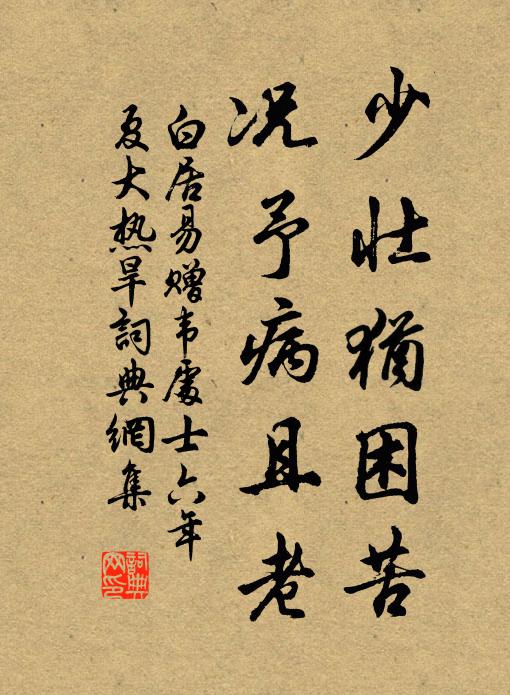 少壮猶困苦
况予病且老
白居易赠韦處士六年
夏大热旱詞典網集
詞典
网印